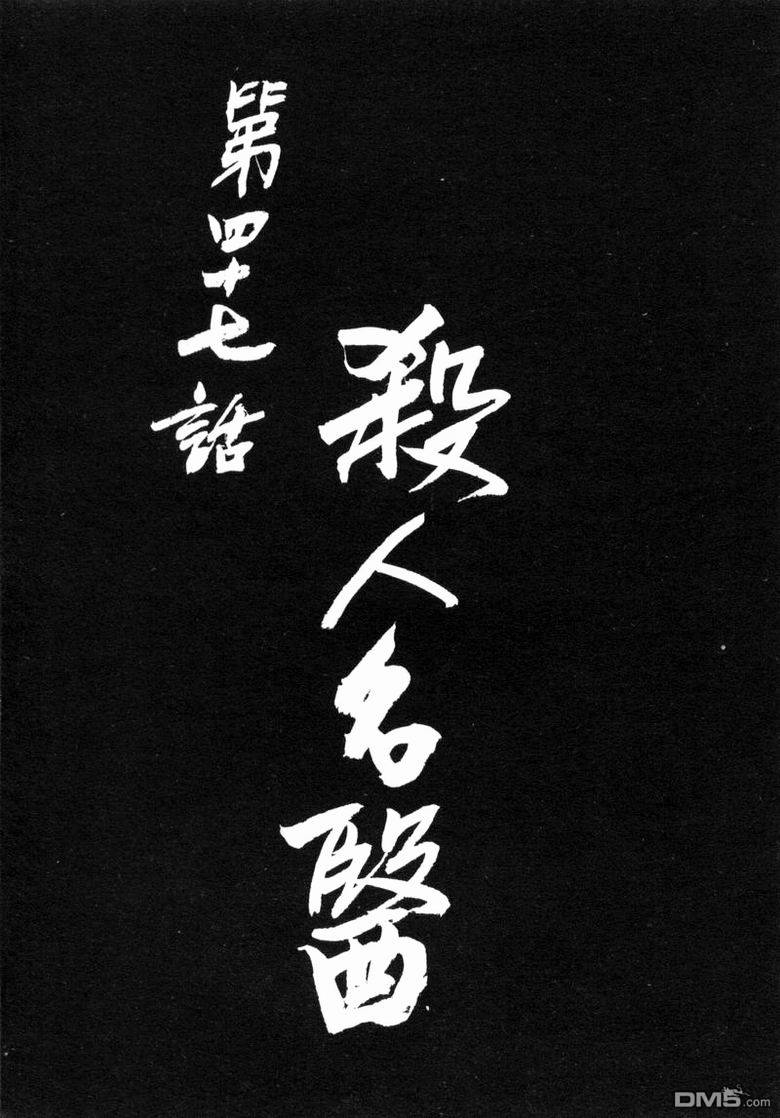 第四十七話
殺人名醫
DM5.com